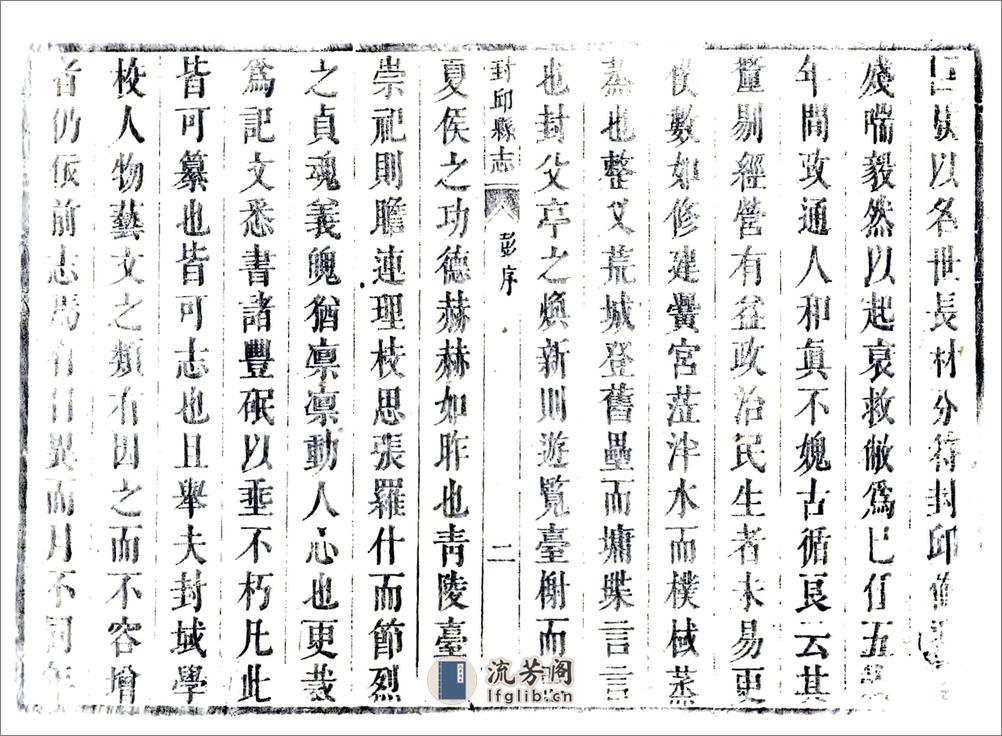 以名世長材分符封邱
殘喘毅然以起衰救敝爲己任五
年間政通人和眞不媿古循良云其
釐剔經營有益政治民生者未易更
僕數如修建黌宮蒞泮水而樸棫蒸
蒸也整乂荒城登舊壘而墉堞言言
也封父亭之煥新則遊覽臺榭而
封邱縣志
彭序
二
夏侯之功德赫赫如昨也靑陵臺
崇祀則瞻連理枝思張羅什而節烈
之貞魂義魄猶凛凛動人心也更裁
爲記文悉書諸豐砇以垂不朽凡此
皆可纂也皆可志也且舉夫封域學
校人物藝文之類有因之而不容增
者仍依前志焉有日異而月不同年
流芳阁
lfglib.cn